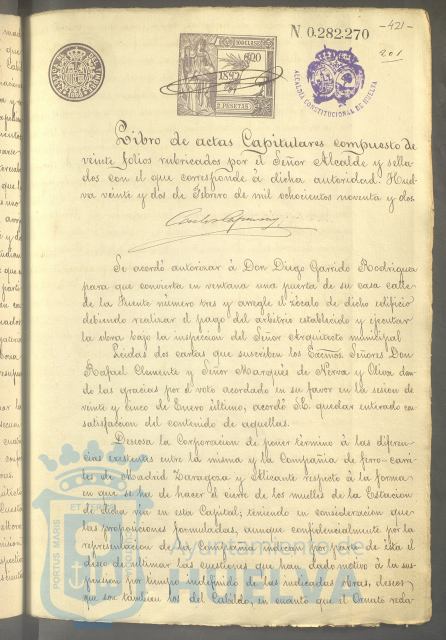 N 0.282.270
-421-
201
100 CLASE
1892
2 PESETAS
ALCALDÍA CONSTITUCIONAL DE HUELVA
Libro de actas Capitulares compuesto de
veinte folios rubricados por el Señor Alcalde y sella-
dos con el que corresponde á dicha autoridad. Huel-
va veinte y dos de Febrero de mil ochocientos noventa y dos.
Se acordó autorizar á Don Diego Garrido Rodriguez
para que convierta en ventana una puerta de su casa calle
de la Fuente número tres y arregle el zócalo de dicho edificio
debiendo realizar el pago del arbitrio establecido y ejecutar
la obra bajo la inspeccion del Señor Arquitecto municipal
Leidas dos cartas que suscriben los Excmos. Señores Don
Rafael Clemente y Señor Marqués de Nerva y Oliva dan-
do las gracias por el voto acordado en su favor en la sesion de
veinte y cinco de Enero último; acordó S.E. quedar enterado con
satisfaccion del contenido de aquellas.
Deseosa la Corporacion de poner término á las diferen-
cias existentes entre la misma y la Compañia de ferro-carri-
les de Madrid Zaragoza y Alicante respecto á la forma
en que se ha de hacer el cierre de los muelles de la Estacion
de dicha via en esta Capital; teniendo en consideracion que
las proposiciones formuladas, aunque confidencialmente por la
representacion de la Compañia indican por parte de ésta el
deseo de ultimar las cuestiones que han dado motivo á la sus-
pension por tiempo indefinido de las indicadas obras, deseos
que son tambien los del Cabildo, en cuanto que el
PORTUS MARIS
Ayuntamiento de
HUELVA